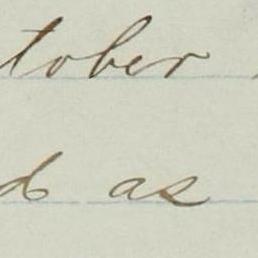 tober
d as